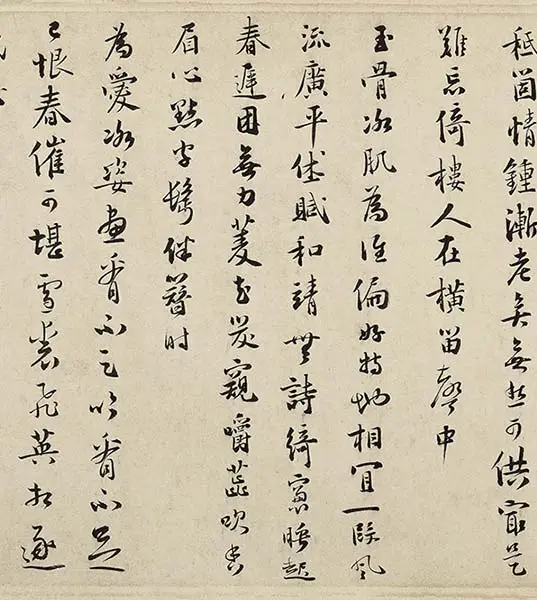 祗箇情鍾漸老矣無愁可供冣是
難忘倚樓人在橫笛聲中
玉骨冰肌為誰偏好特地相宜一段風
流廣平休賦和靖無詩綺窗睡起
春遲困無力菱花笑窺嚼蕊吹香
眉心點處鬢伴簪時
為愛冰姿畫看不足吟看不足
已恨春催可堪雪裏飛英相逐